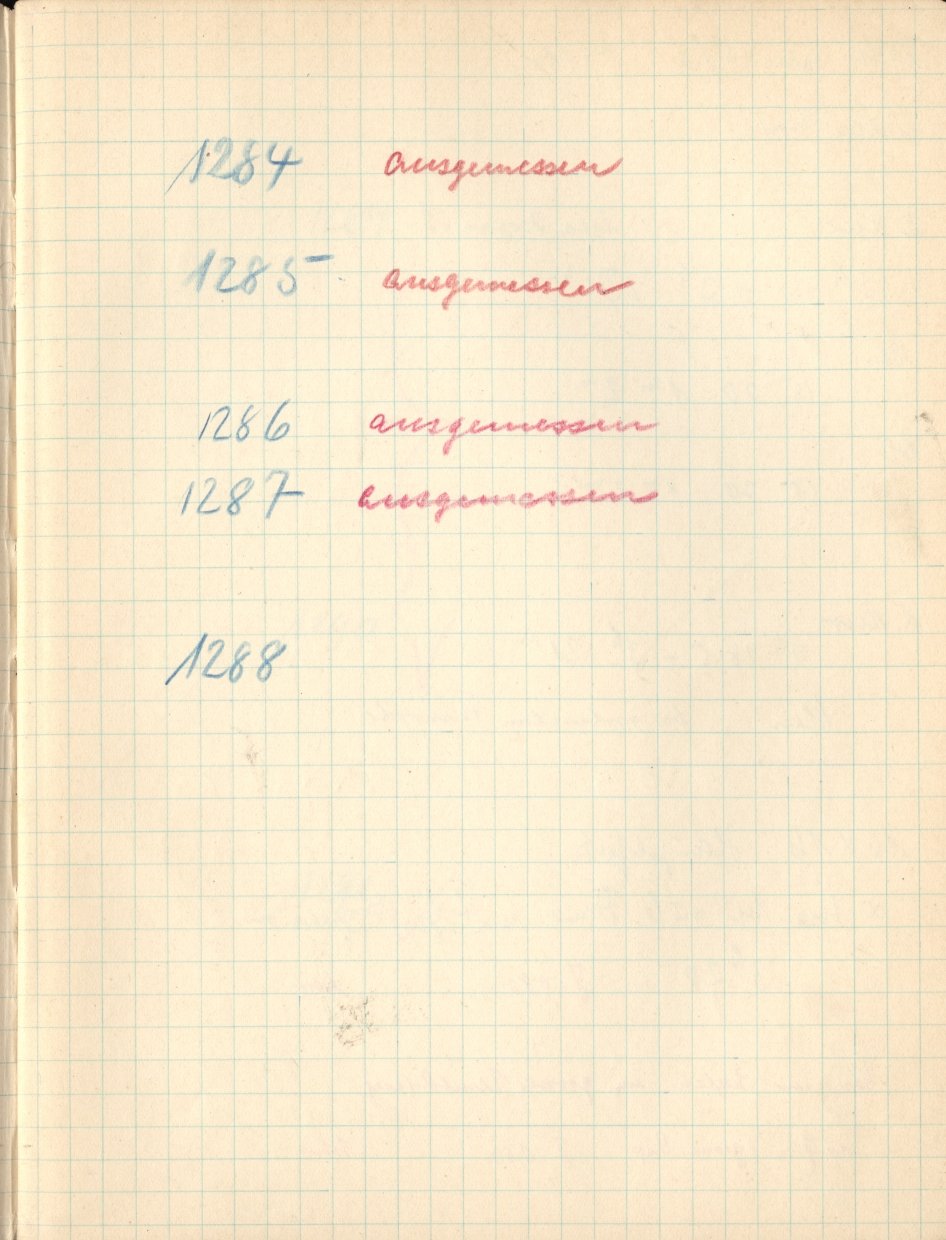 1284 ausgemessen
1285 ausgemessen
1286 ausgemessen
1287 ausgemessen
1288